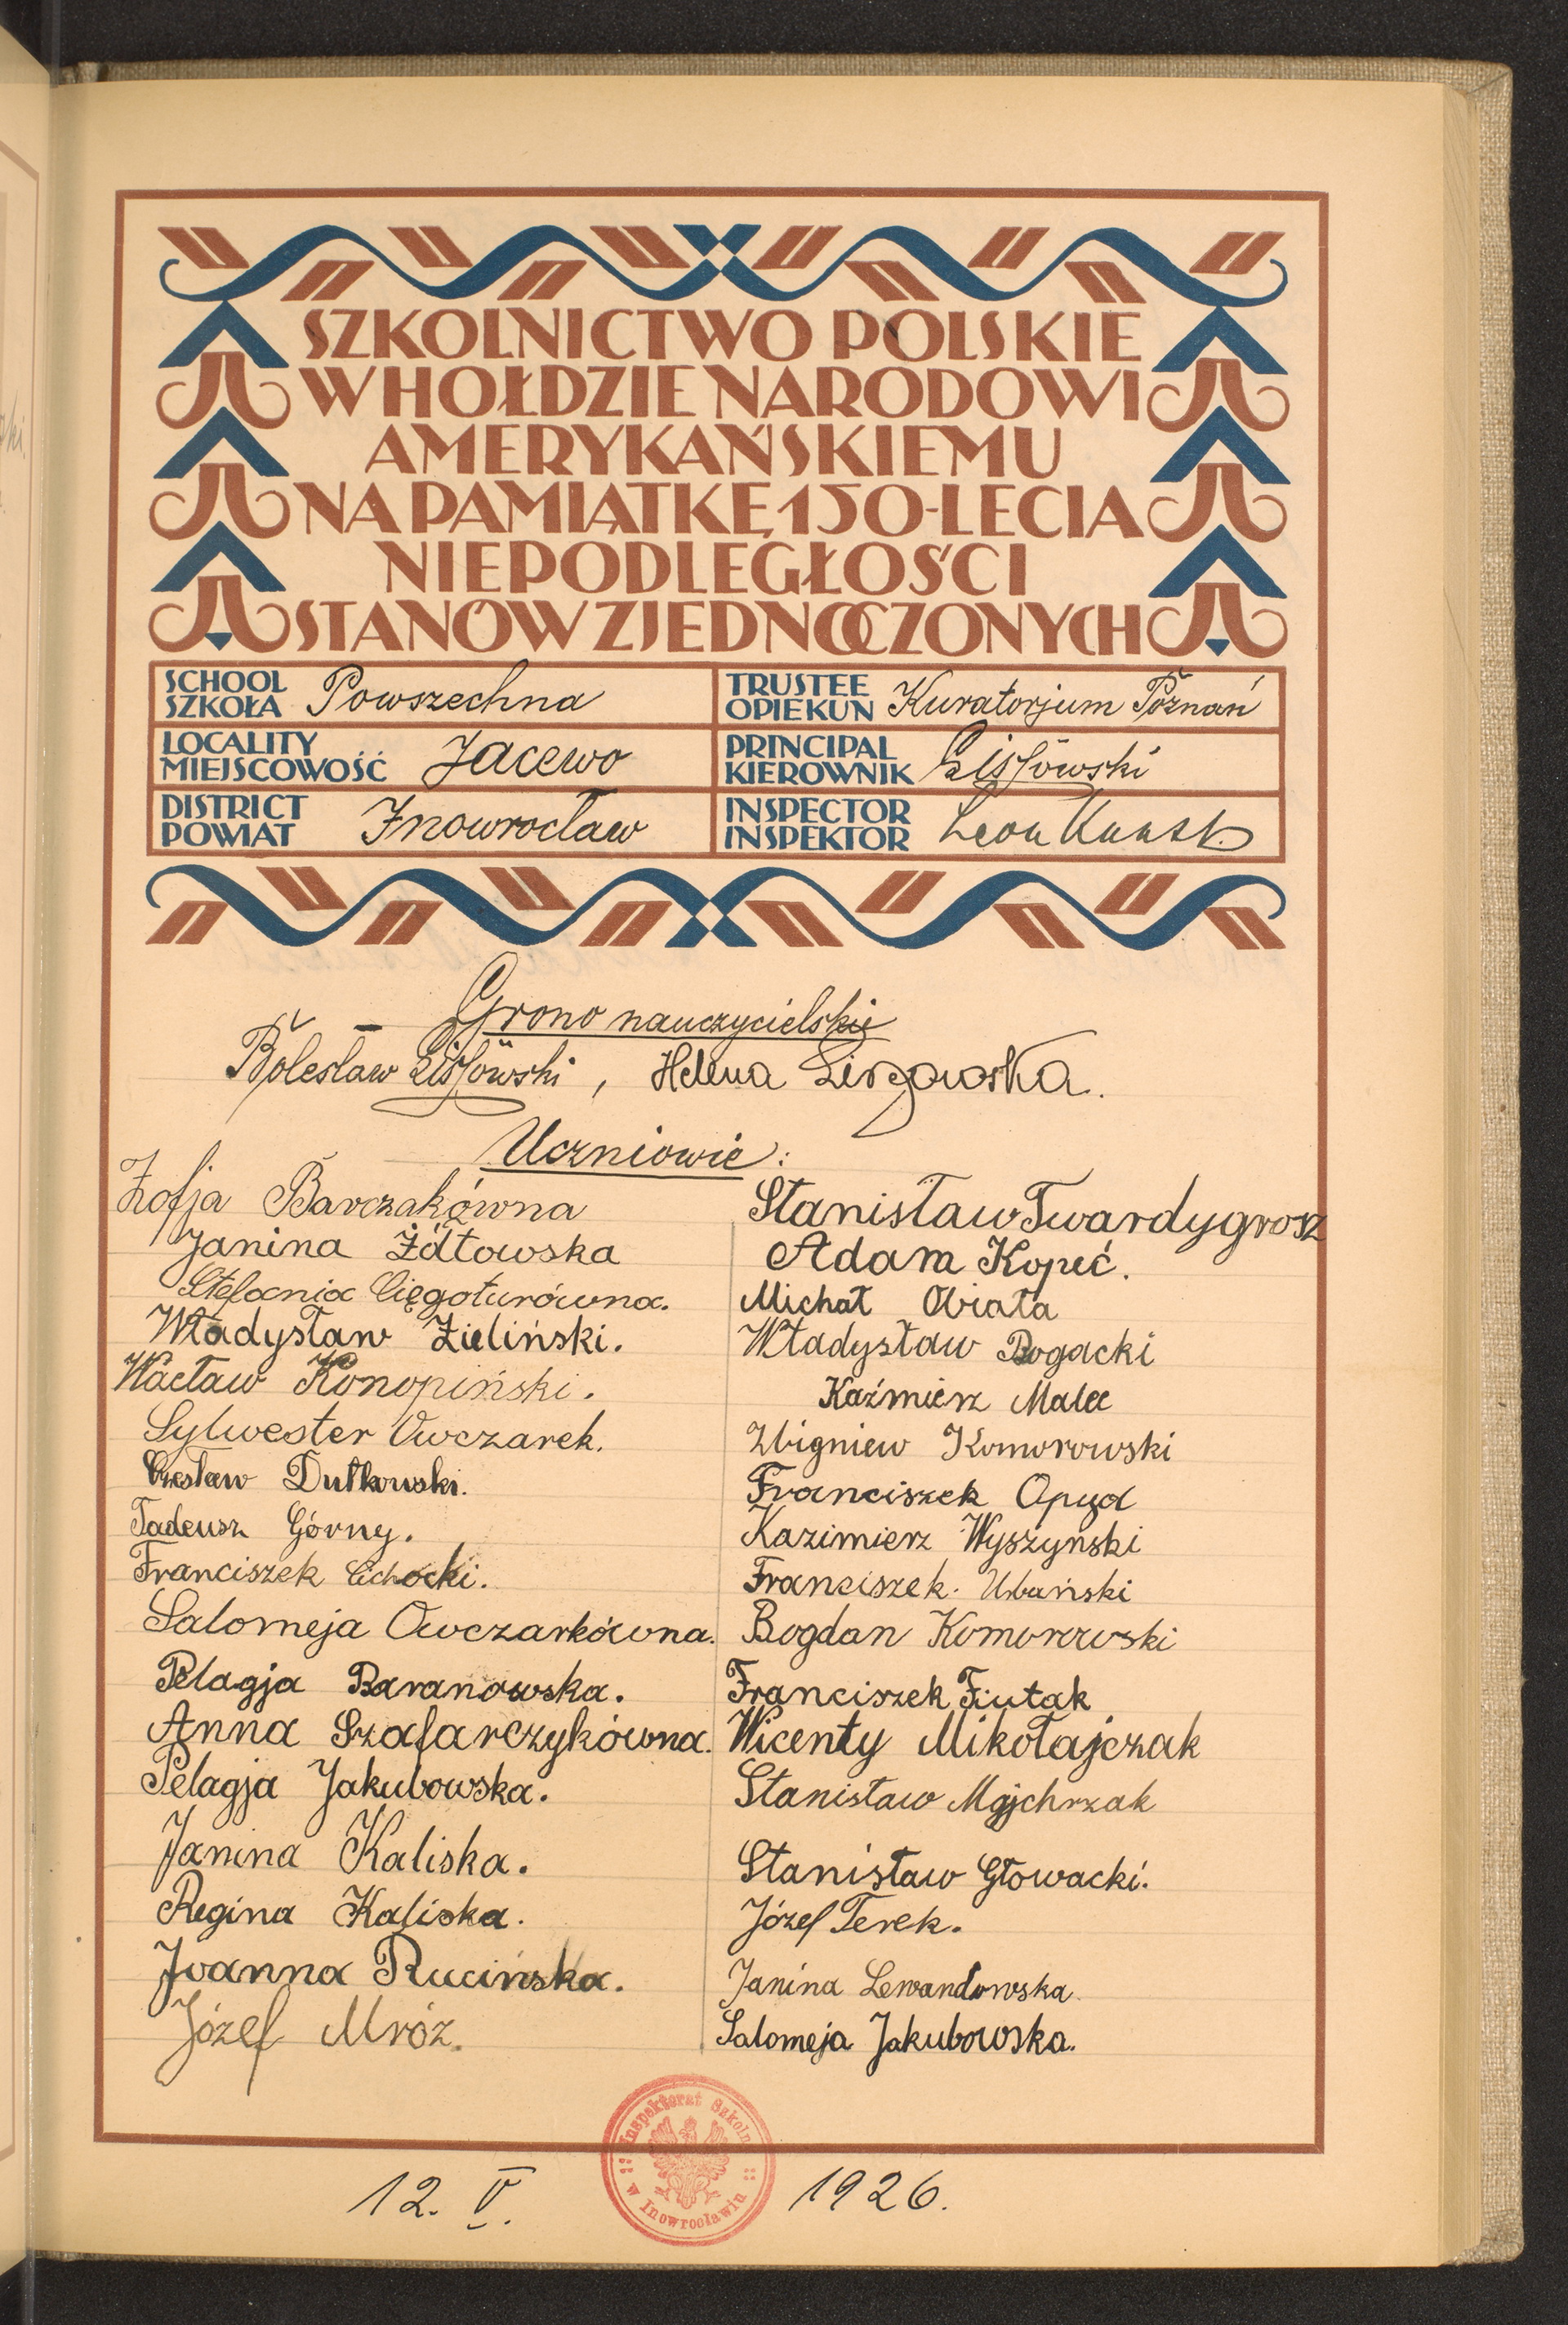 SZKOLNICTWO POLSKIE
W HOŁDZIE NARODOWI
AMERYKAŃSKIEMU
NA PAMIĄTKĘ 150-LECIA
NIEPODLEGŁOŚCI
STANÓW ZJEDNOCZONYCH
SCHOOL
SZKOŁA Powszechna
TRUSTEE
OPIEKUN Kuratorjum Poznań
LOCALITY
MIEJSCOWOŚĆ Jacewo
PRINCIPAL
KIEROWNIK
DISTRICT
POWIAT Inowrocław
INSPECTOR
INSPEKTOR Leon
Grono nauczycielskie
Bolesław , Helena
Uczniowie:
Zofja Barczakówna
Janina Żółtowska
Stefania Cięgoturówna.
Władysław Zieliński.
Wacław Konopiński.
Sylwester Owczarek.
Czesław Dutkowski.
Tadeusz Górny.
Franciszek Cichocki.
Salomeja Owczarkówna.
Pelagja Baranowska.
Anna Szafarczykówna.
Pelagja Jakubowska.
Janina Kaliska.
Regina Kaliska.
Joanna Rucińska.
Józef Mróz.
Stanisław Twardygrosz
Adam Kopeć.
Michał
Władysław Bogacki
Kaźmierz Malec
Zbigniew Komorowski
Franciszek
Kazimierz Wyszyński
Franciszek. Urbański
Bogdan Komorowski
Franciszek Fiutak
Wicenty Mikołajczak
Stanisław Majchrzak
Stanisław Głowacki.
Józef Terek.
Janina Lewandowska
Salomeja Jakubowska.
Inspektorat Szkolny
w Inowrocławiu
12. V. 1926.